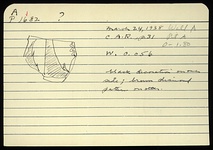 A
P 1682 ?
March 24, 1935 Well A
C.A.R. 631
D = 1.30
W. 0.056
Black decoration on one
side; brown
pattern on other.